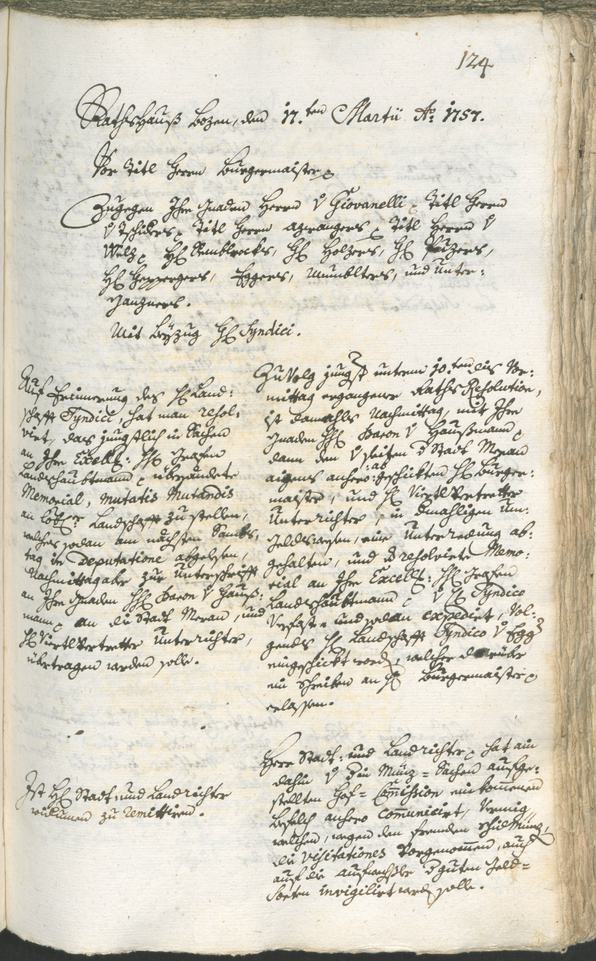 124
Rathshauß Bozen, den 17.ten Martii Ao. 1757.
Vor Titl Herrn Burgermaister
Zugegen Ihro Gnaden Herrn v Giovanelli, Titl Herrn
v Tschiders, Titl Herrn Azwangers, Titl Herrn v
Welz, H: Rembdockts, H: Holzers, H: Puzers,
H: Gepppergers, Eggers, Mumblters, und Unter-
ganzners.
Mit Beyzug H: Syndici.
Auf Erinnerung des H: Land-
schafft Syndici hat man resol-
virt, das jüngstlich in Sachen
an Ihro Excell: H: Grafen
Landshaubtmann überändete
Memorial, mutatis mutandis
an Löbl: Landschafft zu stellen,
welches sodan am nächsten Sambs-
tag in Deputatione abgelesen,
Nachmittag aber zur Unterschrifft
an Ihro Gnaden H: Baron v Hauß-
mann, an die Stadt Meran, und
H: Viertlvertretter Unterrichter,
übertragen werden solle.
Zu Volg jüngst unterm 10.ten dis Vor-
mittag ergangener Raths Resolution,
ist damalls Nachmittag, mit Ihro
Gnaden H: Baron v Haußmann,
dann den v seiten d Stadt Meran
aigens anhero ab-geschickten H: Burger-
maister, und H: Viertlvertretter
Unterrichter, in dermahligen Um-
geldtwesen, eine Unterredung ab-
gehalten, und d resolvirte Memo-
rial an Ihro Excell: H: Grafen
Landshaubtmann v H: Syndico
Verfast- und sodan expedirt, Vol-
gends H: Landschafft Syndico v Egg
eingeschickt word, welcher darüber
ein Schreiben an H: Burgermaister
erlassen.
Ist H: Stadt- und Landrichter
widerumen zu remittiren.
Herr Stadt- und Landrichter, hat ain
dahin v d in Münz-Sachen aufge-
stellten Hof-Comission einkomenen
Befelch anhero comunicirt, Vermög
welchen, wegen den frembden Schidmünz,
die Visitationes vorgenommen, auch
auf die Auswechsler d guten Geld-
Sorten invigilirt werd solle.